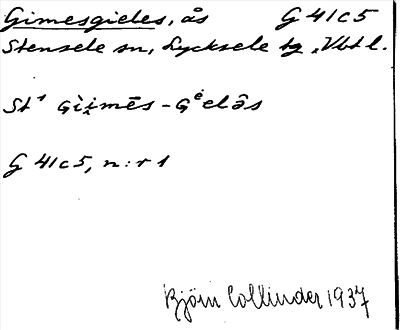 Gimesgieles, ås G 41c5
Stensele sn, Lycksele tg, Vbtl.
St¹
G 41c5, n:r 1
Björn Collinder 1937